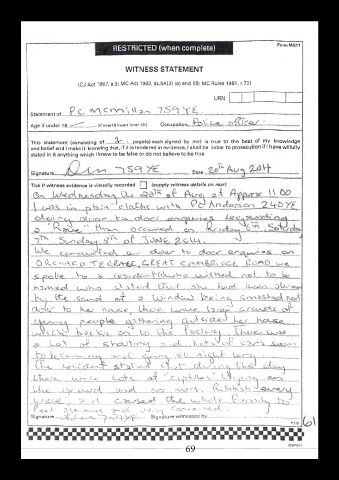 RESTRICTED (when complete)
Form MG11
WITNESS STATEMENT
(CJ Act 1967, s.9; MC Act 1980, ss.5A(3) (a) and 5B; MC Rules 1981, r.70)
URN
Statement of PC McMillan 759YE
Age if under 18 (if over 18 insert 'over 18') Occupation Police officer
This statement (consisting of 1 page(s) each signed by me) is true to the best of my knowledge
and belief and I make it knowing that, if it is tendered in evidence, I shall be liable to prosecution if I have wilfully
stated in it anything which I know to be false or do not believe to be true.
Signature 759YE Date 20th Aug 2014
Tick if witness evidence is visually recorded (supply witness details on rear)
On Wednesday the 20th of Aug at Approx 1100
I was in plain clothes with PC Anderson 240YE
doing door to door enquiries regarding
a "Rave" that occurred on Friday 6th Saturday
7th Sunday 8th of JUNE 2014.
We conducted door to door enquiries on
ORCHARD TERRACE, GREAT CAMBRIDGE ROAD we
spoke to a resident who wished not to be
named who stated that she had been
by the sound of a window being smashed next
door to her house, there were large crowds of
young people gathering outside her house
which backs on to the factory. There was
a lot of shouting and lots of cars
all night long.
The resident stated that during the day
there were lots of lying on
the ground and Rubbish every
where and caused the whole family to
feel and very concerned.
Signature Signature witnessed by
61
69